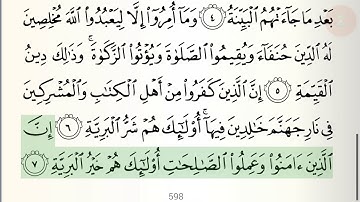 بَعْدِ مَا جَآءَتْهُمُ ٱلْبَيِّنَةُ ٤ وَمَآ أُمِرُوٓا۟ إِلَّا لِيَعْبُدُوا۟ ٱللَّهَ مُخْلِصِينَ
لَهُ ٱلدِّينَ حُنَفَآءَ وَيُقِيمُوا۟ ٱلصَّلَوٰةَ وَيُؤْتُوا۟ ٱلزَّكَوٰةَ ۚ وَذَٰلِكَ دِينُ
ٱلْقَيِّمَةِ ٥ إِنَّ ٱلَّذِينَ كَفَرُوا۟ مِنْ أَهْلِ ٱلْكِتَٰبِ وَٱلْمُشْرِكِينَ
فِى نَارِ جَهَنَّمَ خَٰلِدِينَ فِيهَآ ۚ أُو۟لَٰٓئِكَ هُمْ شَرُّ ٱلْبَرِيَّةِ ٦ إِنَّ
ٱلَّذِينَ ءَامَنُوا۟ وَعَمِلُوا۟ ٱلصَّٰلِحَٰتِ أُو۟لَٰٓئِكَ هُمْ خَيْرُ ٱلْبَرِيَّةِ ٧
598